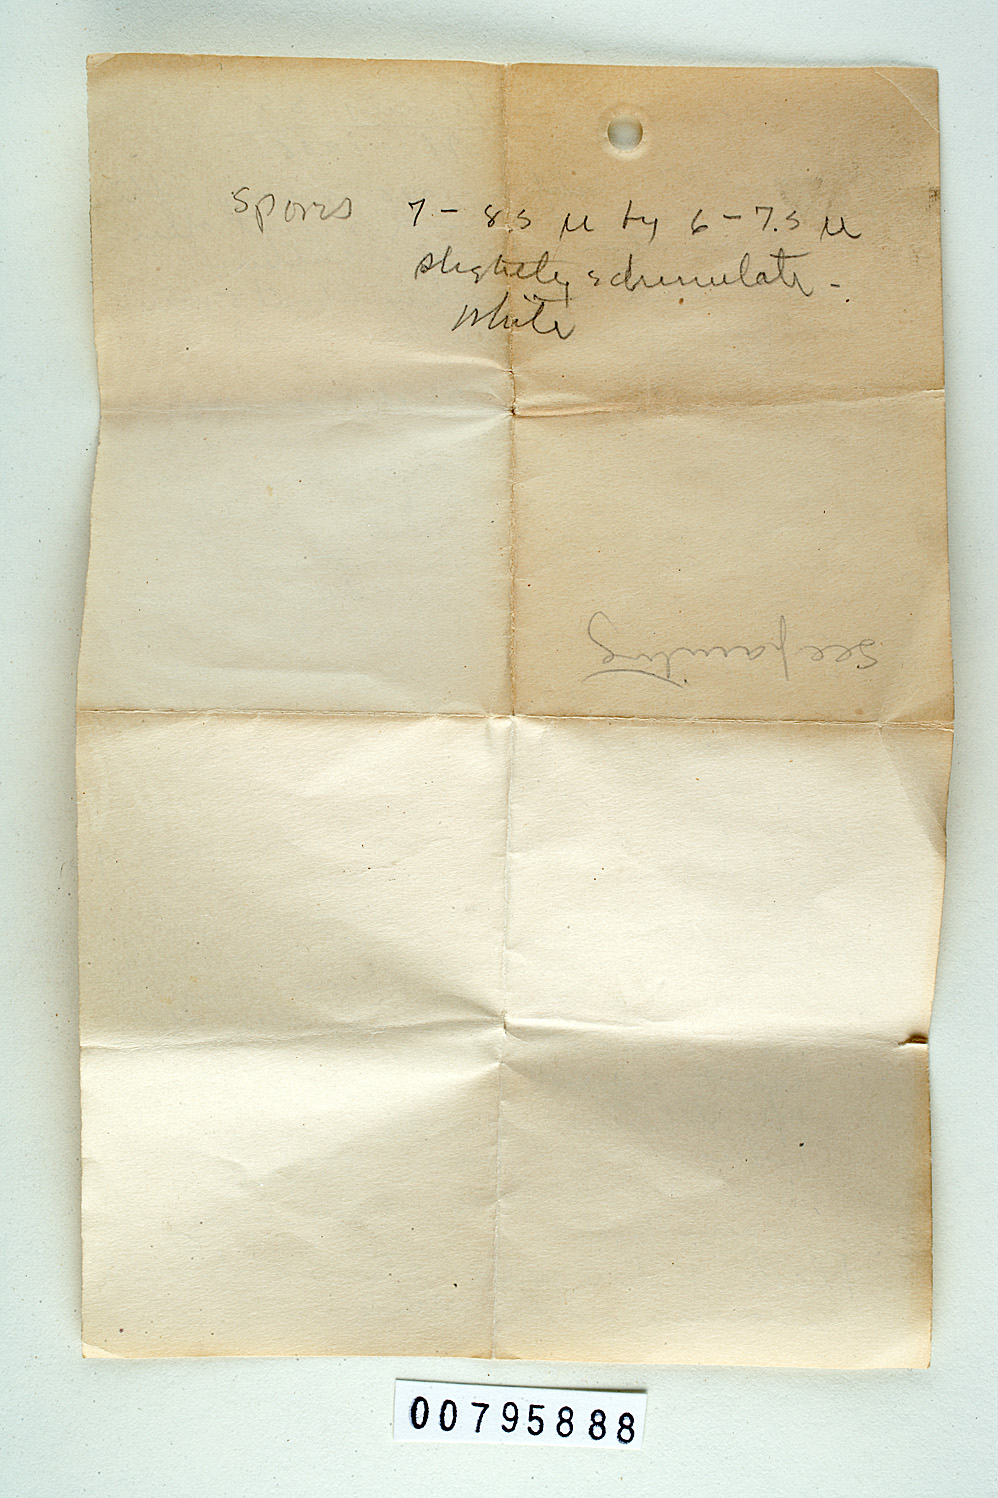 Spores 7 - 8.5 µ by 6 - 7.5 µ
slightly echinulate -
white
See painting
00795888